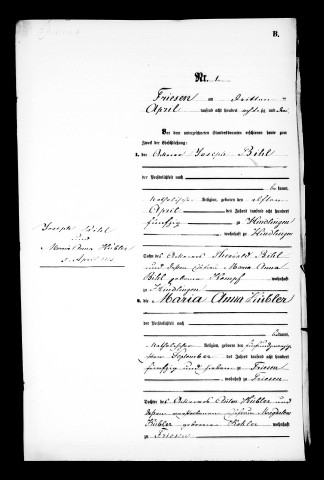 B.
Nr. 1
Friesen am dritten
April tausend acht hundert achtzig und drei
Vor dem unterzeichneten Standesbeamten erschienen heute zum
Zweck der Eheschließung:
1. der Ackerer Joseph Bihl
der Persönlichkeit nach
kannt,
katholischer Religion, geboren den elften
April des Jahres tausend acht hundert
fünfzig zu Hindlingen
wohnhaft zu Hindlingen
Sohn des Ackerers Bihl
und dessen Ehefrau Maria Anna
Bihl geborene Kempf wohnhaft
zu Hindlingen
2. die Maria Anna Kübler
der Persönlichkeit nach
kannt,
katholischer Religion, geboren den
ten September des Jahres tausend acht hundert
fünfzig und sieben zu Friesen
wohnhaft zu Friesen
Tochter des Ackerers Kübler und
dessen Ehefrau Magdalena
Kübler geborene Kohler wohnhaft
zu Friesen
Joseph Bihl
und
Maria Anna Kübler
3. April